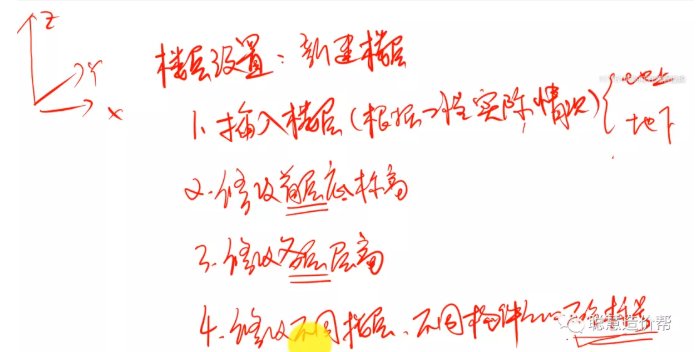 Z
Y
X
楼层设置：新建楼层
1、插入楼层（根据工程实际情况）{地上
地下
2、修改首层底标高
3、修改各层层高
4、修改不同楼层、不同构件的砼标号
聪慧造价帮